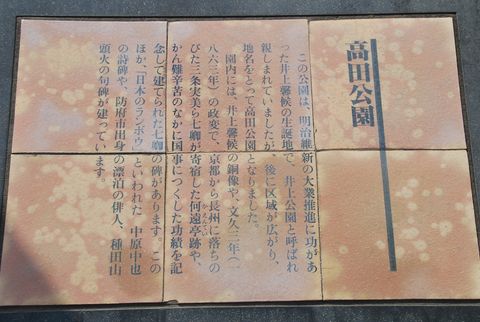 高田公園
この公園は、明治維新の大業推進に功があ
った井上馨候の生誕地で、井上公園と呼ばれ
親しまれていましたが、後に区域が広がり、
地名をとって高田公園となりました。
園内には、井上馨候の銅像や、文久三年(一
八六三)の政変で、京都から長州に落ちの
びた三条実美ら七卿が寄宿した何遠亭跡や、
かん難辛苦のなかに国事につくした功績を記
念して建てられた七卿の碑があります。この
ほか、「日本のランボウ」といわれた 中原中也
の詩碑や、防府市出身の漂泊の俳人、種田山
頭火の句碑が建っています。